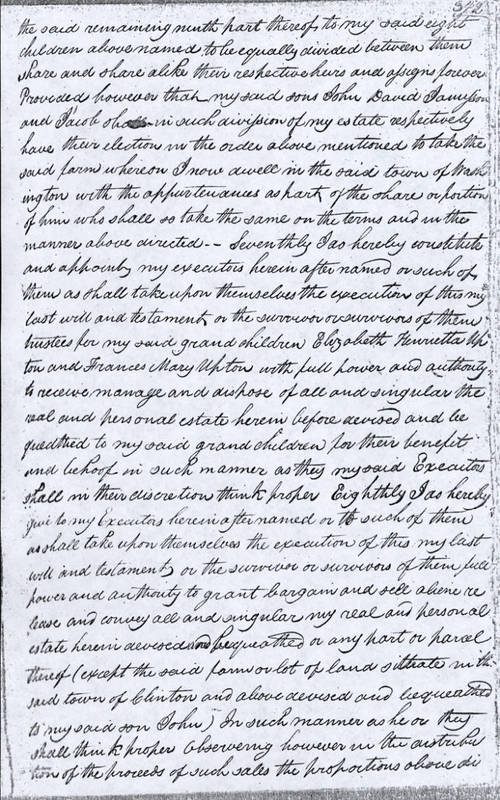 the said remaining ninth part thereof to my said eight
children above named to be equally divided between them
share and share alike their respective heirs and assigns forever
Provided however that my said sons John David Jamieson
and Jacob shall in such division of my estate respectively
have their election in the order above mentioned to take the
said farm whereon I now dwell in the said town of Wash
ington with the appurtenances as part of the share or portion
of him who shall so take the same on the terms and in the
manner above directed -- Seventhly I do hereby constitute
and appoint my executors herein after named or such of
them as shall take upon themselves the execution of this my
last will and testament or the survivor or survivors of them
trustees for my said grand children Elizabeth Henrietta Up
ton and Frances Mary Upton with full power and authority
to receive manage and dispose of all and singular the
real and personal estate herein before devised and be
queathed to my said grand children for their benefit
and behoof in such manner as they my said Executors
shall in their discretion think proper Eighthly I do hereby
give to my Executors herein after named or to such of them
as shall take upon themselves the execution of this my last
will and testament or the survivor or survivors of them full
power and authority to grant bargain and sell aliene re
lease and convey all and singular my real and personal
estate herein devised and bequeathed or any part or parcel
thereof (except the said farm or lot of land situate in th
said town of Clinton and above devised and bequeathed
to my said son John) In such manner as he or they
shall think proper observing however in the distribu
tion of the proceeds of such sales the proportions above di